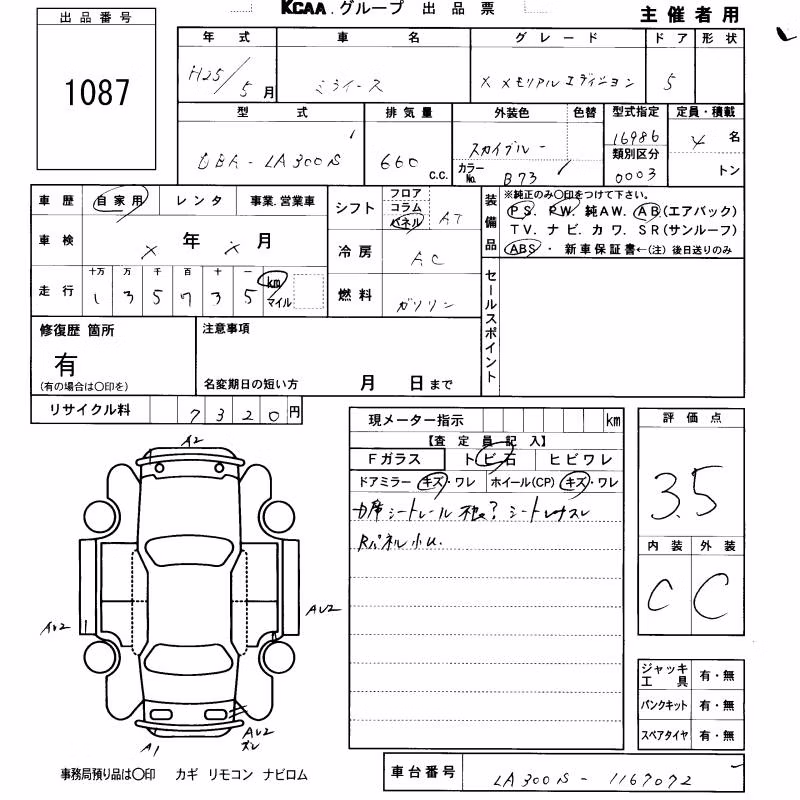 KCAA.グループ 出品票
主催者用
出品番号
1087
年式 車名 グレード ドア 形状
H25/5月 ミライース X メモリアルエディション 5
型式 排気量 外装色 色替 型式指定 定員・積載
DBA-LA300S 660 c.c. スカイブルー カラーNo. B73 16986 4名
類別区分
0003 トン
車歴 自家用 レンタ 事業.営業車
シフト フロア コラム パネル AT
装備品 ※純正のみ○印をつけて下さい。
PS. PW. 純AW. AB(エアバック)
TV. ナビ. カワ. SR(サンルーフ)
ABS・新車保証書←(注) 後日送りのみ
車検 × 年 × 月
冷房 AC
走行 十万 万 千 百 十 一 km マイル
1 3 5 7 3 5
燃料 ガソリン
セールスポイント
修復歴 箇所
有
(有の場合は○印を)
注意事項
名変期日の短い方 月 日まで
リサイクル料 7320円
現メーター指示 km
【査定員記入】
Fガラス トビ石 ヒビワレ
ドアミラー キズ・ワレ ホイール(CP) キズ・ワレ
シートレール シートスレ
Rパネル小U.
評価点
3.5
内装 外装
C C
A2
AU2
AU2
A1
AU2
ズレ
ジャッキ工具 有・無
パンクキット 有・無
スペアタイヤ 有・無
事務局預り品は○印 カギ リモコン ナビロム
車台番号 LA300S-1167072